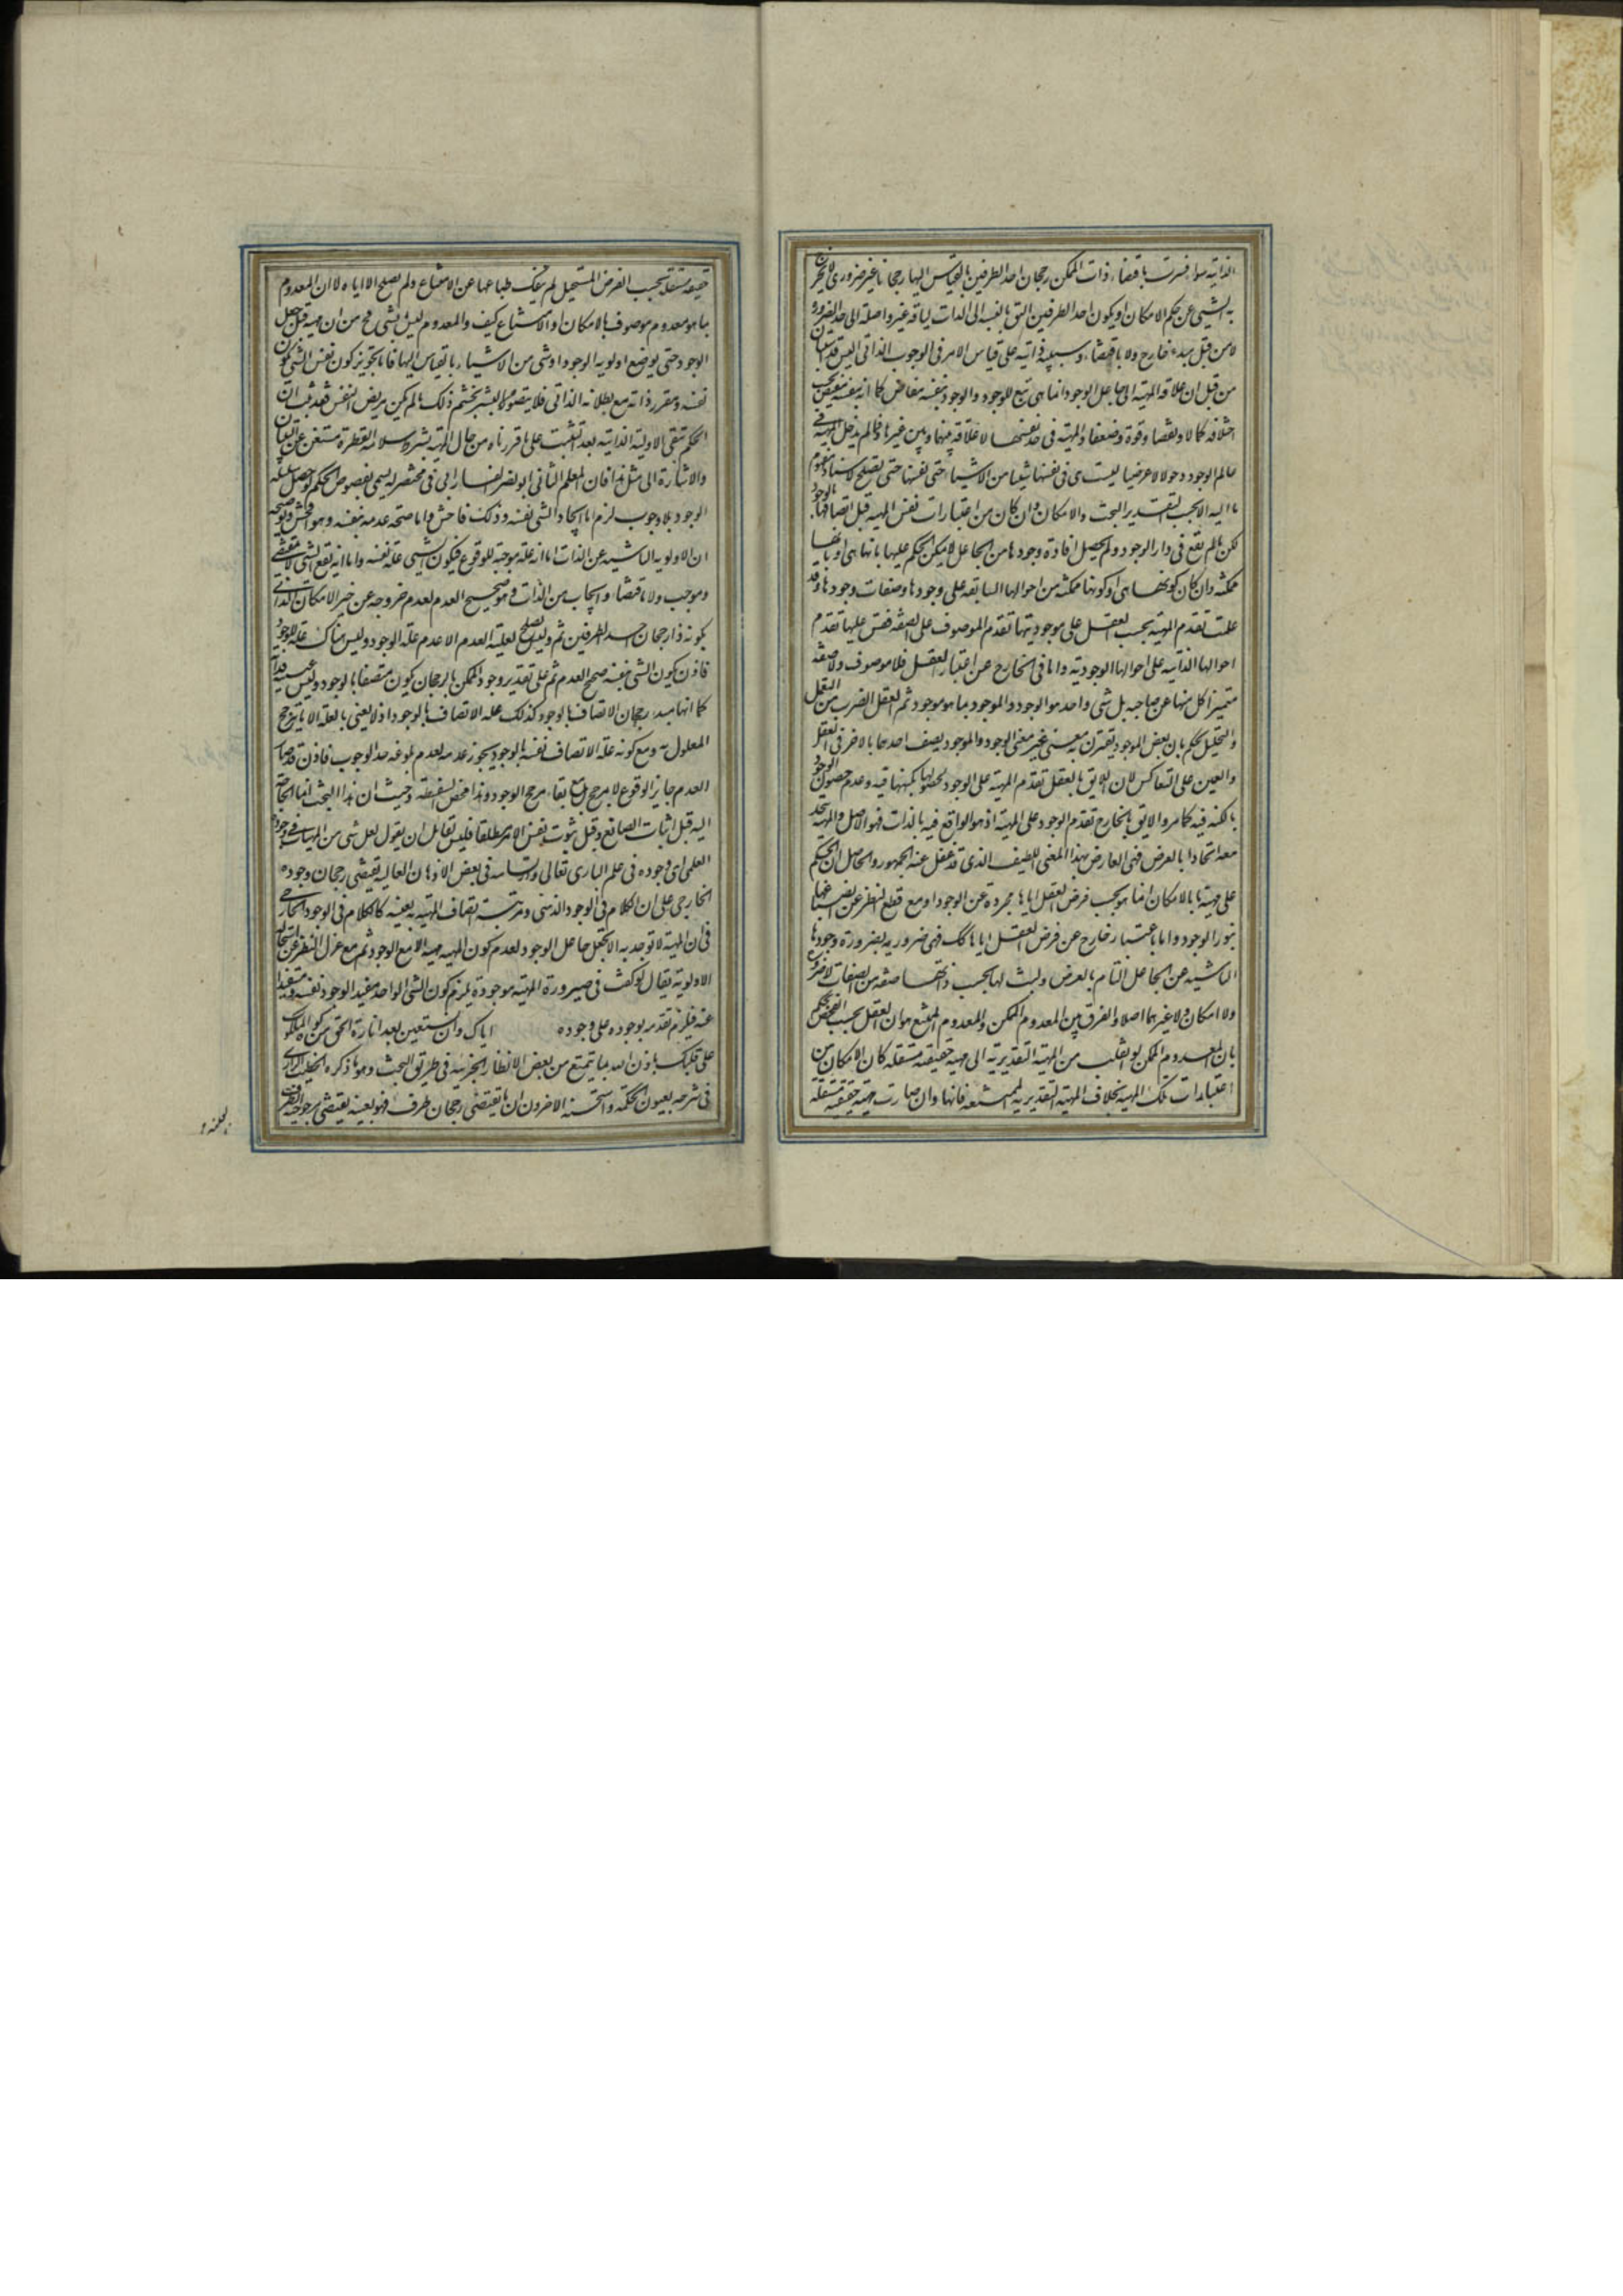 الذاتيه سواء فسرت باقتضاء ذات الممكن رجحان احد الطرفين بالقياس اليها رجحانا غير ضرورى لا يخرج
به الشيىء عن حكم الامكان او بكون احد الطرفين اليق بالنسبه الى الذات لياقه غير واصلة الى حد الضروره
لا من قبل مبدء خارج ولا باقتضاء وسببيه ذاتيه على قياس الامر فى الوجوب الذاتى اليس قد استبان
من قبل ان علاقه المهية الى جاعل الوجود انما هى بتبع للوجود والوجود بنفسه مفاض كما انه بنفسه مفيض بحسب
اختلافه كمالا ونقصا وقوة وضعفا والمهية فى حد نفسها لا علاقة بينها وبين غيرها فما لم يدخل المهية فى
عالم الوجود دخولا لا عرضيا ليست هى فى نفسها شيئا من الاشياء حتى نفسها حتى يصلح لاسناد مفهوم
ما اليه الا بحسب التقدير البحت والامكان وان كان من اعتبارات نفس المهية قبل اتصافها بالوجود
لكن ما لم يقع فى دار الوجود ولم يحصل افادة وجودها من الجاعل لا يمكن الحكم عليها بانها هى او بانها
ممكنه وان كان كونها هى او كونها ممكنه من احوالها السابقه على وجودها وصفات وجودها وقد
علمت تقدم المهية بحسب العقل على موجوديتها تقدم الموصوف على الصفه فقس عليها تقدم
احوالها الذاتيه على احوالها الوجوديه واما فى الخارج عن اعتبار العقل فلا موصوف ولا صفة
متميزا كل منها عن صاحبه بل شى واحد هو الوجود والموجود بما هو موجود ثم العقل بضرب من التعمل
والتحليل يحكم بان بعض الموجود يقترن به معنى غير معنى الوجود والموجود يصف احدهما بالاخر فى العقل
والعين على التعاكس لان اللايق بالعقل تقدم المهية على الوجود لحصولها بكنهها فيه وعدم حصول الوجود
بالكنه فيه كما مر والاليق بالخارج تقدم الوجود على المهية اذ هو الواقع فيه بالذات فهو الاصل والمهية تتحد
معه اتحادا بالعرض فهى العارض بهذا المعنى اللطيف الذى قد غفل عنه الجمهور والحاصل ان الحكم
على مهية ما بالامكان انما هو بحسب فرض العقل اياها مجردة عن الوجود او مع قطع النظر عن انصباغها
بنور الوجود واما باعتبار خارج عن فرض العقل اياها كك فهى ضروريه بضرورة وجودها
الناشيه عن الجاعل التام بالعرض وليست لها بحسب ذاتها صفة من الصفات لا ضرورة
ولا امكان ولا غيرهما اصلا والفرق بين المعدوم الممكن والمعدوم الممتنع هو ان العقل بحسب الفحص يحكم
بان المعدوم الممكن لو انقلب من المهية التقديرية الى مهية حقيقيه مستقله كان الامكان من
اعتبارات تلك المهية بخلاف المهية التقديريه للممتنعه فانها وان صارت مهية حقيقيه مستقله
حقيقه مستقله بحسب الفرض المستحيل لم ينفك طباعها عن الامتناع ولم يصلح الا اياه لا ان المعدوم
بما هو معدوم موصوف بالامكان او الامتناع كيف والمعدوم ليس بشى فح من ان مهيه قبل جعل
الوجود حتى يوضع اولويه الوجود او شى من الاشياء بالقياس اليها فاما تجويز كون نفس الشى مكون
نفسه ومقرر ذاته مع بطلانه الذاتى فلا يتصور من البشر تجشم ذلك ما لم يكن مريض النفس فقد ثبت ان
الحكم بنفى الاولية الذاتية بعد تثبت على ما قررناه من حال المهية بشرو سلامه الفطرة مستغن عن البيان
والاشارة الى مثل هذا فان المعلم الثانى ابو نصر الفارابى فى مختصر له يسمى بفصوص الحكم لو حصل سلسلة
الوجود بلا وجوب لزم اما ايجاد الشى نفسه وذلك فاحش واما صحة عدمه بنفسه وهو افحش وتوضيحه
ان الاولويه الناشيه عن الذات اما انه علة موجبة للوقوع فيكون الشيىء علة نفسه واما انه يقع الشى لا بمقتضى
وموجب ولا باقتضاء وايجاب من الذات فهو صحيح العدم لعدم خروجه عن حيز الامكان الذاتى
بكونه ذا رجحان احد الطرفين ثم وليس يصلح لعلية العدم الا عدم علة الوجود وليس هناك علة للوجود
فاذن يكون الشى بنفسه صحيح العدم ثم على تقدير وجود الممكن بالرجحان يكون متصفا بالوجود وليس حينئذ
كما انها مبدء رجحان الاتصاف بالوجود كذلك علة الاتصاف بالوجود اذ لا يعنى بالعلة الا ما يترجح
المعلول به ومع كونه علة الاتصاف نفسه بالوجود يجوز عدمه لعدم بلوغه حد الوجوب فاذن قد صار
العدم جايز الوقوع لا بمرجح بل مع بقاء مرجح الوجود وهذا محض السفسطه وحيث ان هذا البحث انما الحاجة
اليه قبل اثبات الصانع وقبل ثبوت نفس الامر مطلقا فليس لقائل ان يقول لعل شى من المهيات فى وجوده
العلمى اى وجوده فى علم البارى تعالى وارتسامه فى بعض الاذهان العاليه يقتضى رجحان وجوده
الخارجى على ان الكلام فى الوجود الذهنى ومرتبة اتصاف المهية به بعينه كالكلام فى الوجود الخارجى
فى ان المهية لا توجد به الا بجعل جاعل الوجود لعدم كون المهيه مهيه الا مع الوجود ثم مع عزل النظر عن استحاله
الاولوية يقال لو كفت فى صيرورة المهية موجودة يلزم كون الشى الواحد مفيد الوجود نفسه ومستفيدا
عنه فيلزم تقدمه بوجوده على وجوده اياك وان تستعين بعد انارة الحق من كوه الملكوت
على قلبك باذن الله بما يتمتع من بعض الانظار الجزئيه فى طريق البحث وهو ما ذكره الخطيب الرازى
فى شرحه لعيون الحكمة واستحسنه الاخرون ان ما يقتضى رجحان طرف فهو بعينه يقتضى مرجوحية الطرف